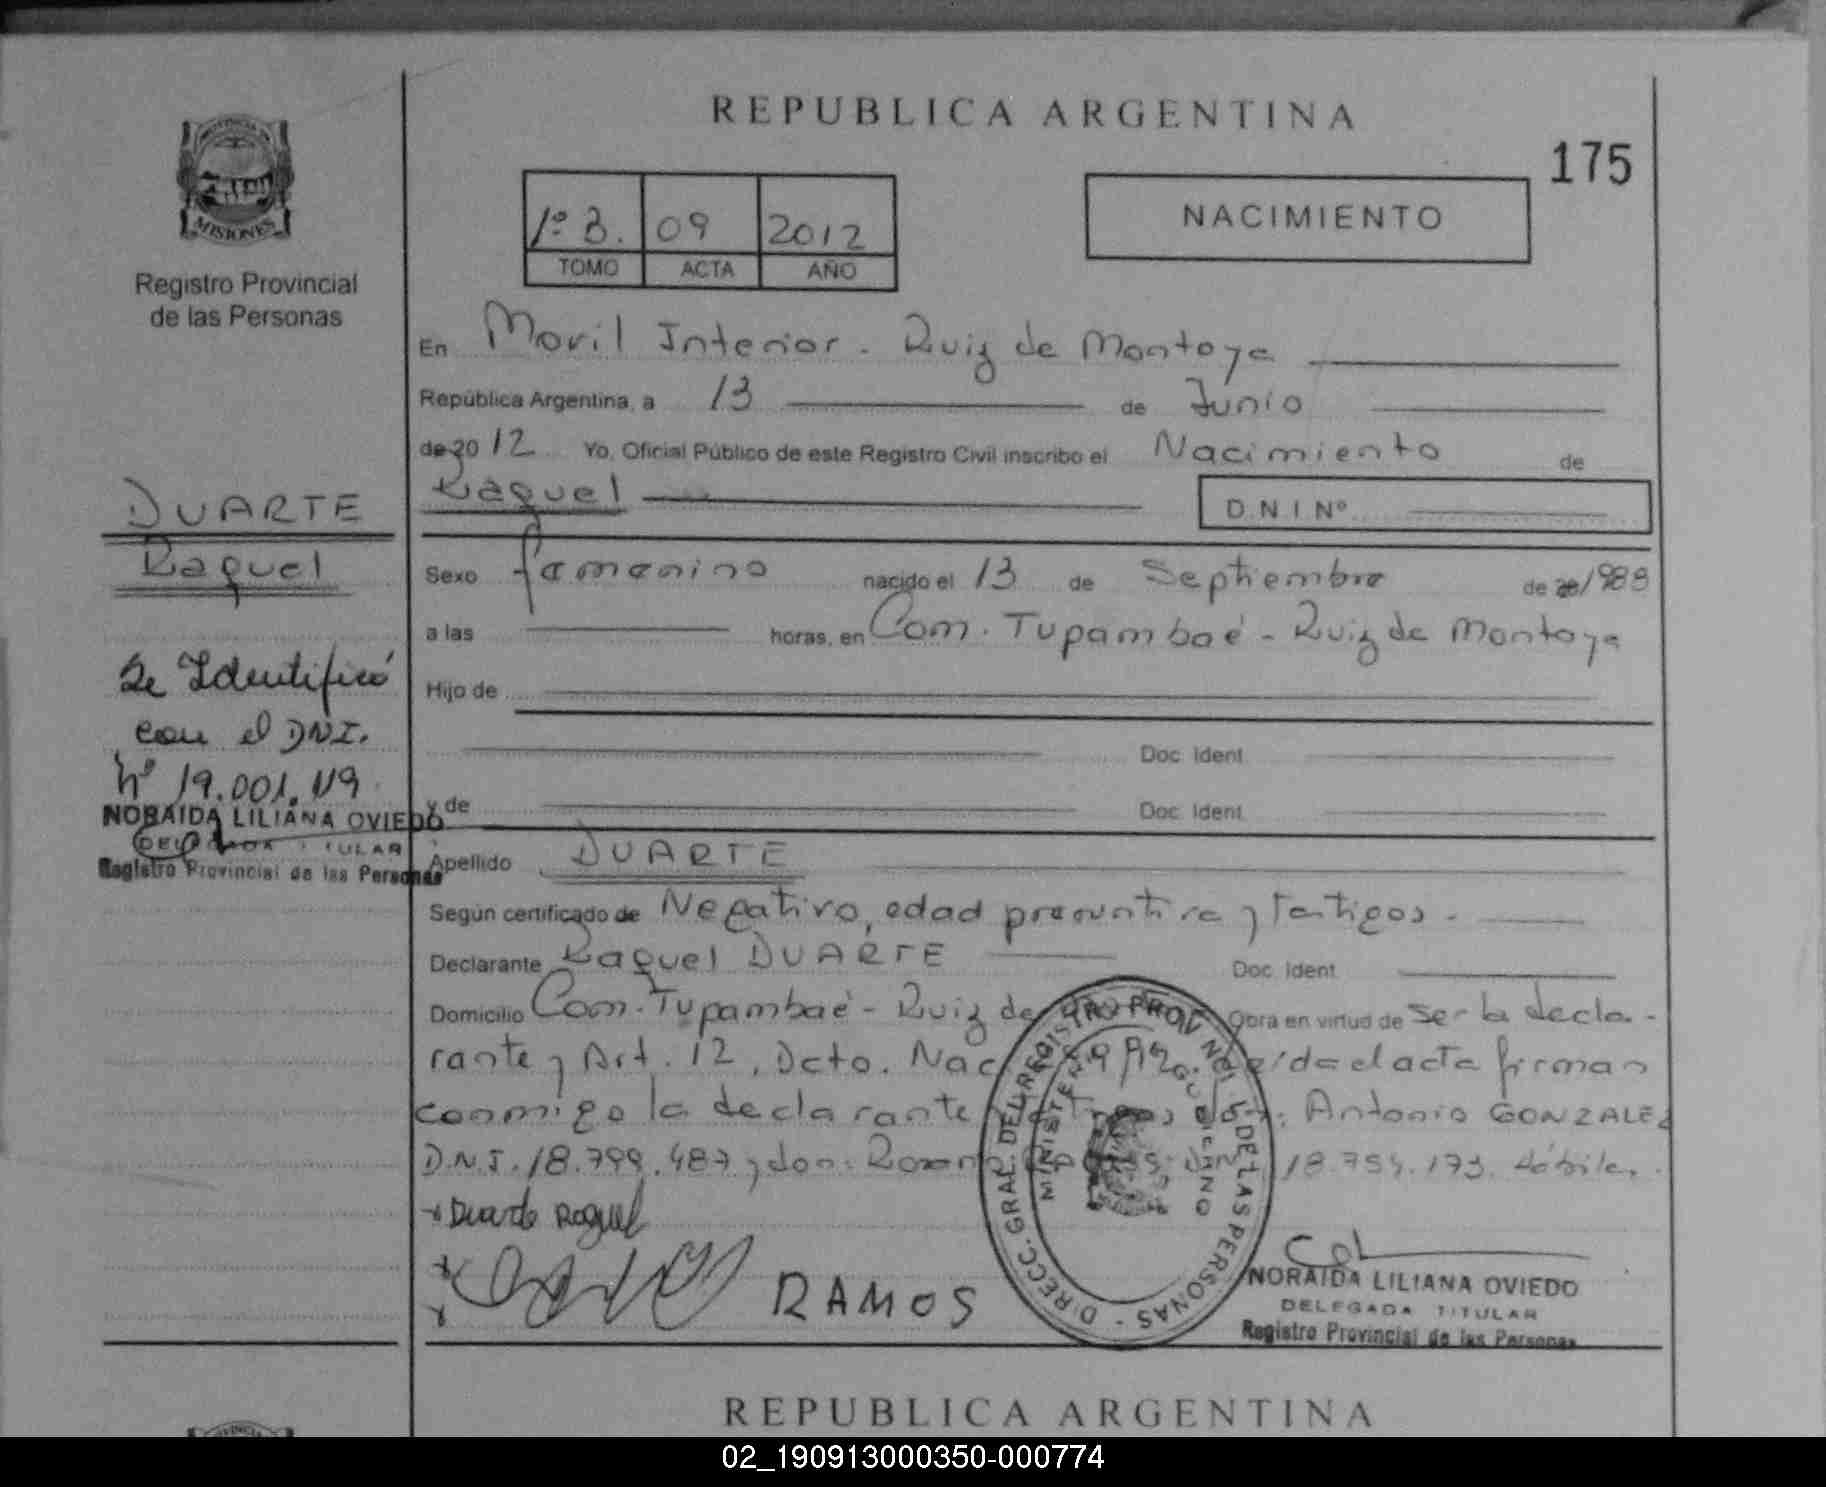 REPUBLICA ARGENTINA
175
1º B. 09 2012
TOMO ACTA AÑO
NACIMIENTO
MISIONES
Registro Provincial
de las Personas
En Movil Interior - Ruiz de Montoya
República Argentina, a 13 de Junio
de 20 12 Yo, Oficial Público de este Registro Civil inscribo el Nacimiento de
Raquel D.N.I Nº
DUARTE
Raquel
Sexo femenino nacido el 13 de Septiembre de
a las horas, en Com. Tupambaé - Ruiz de Montoya
Hijo de
Doc. Ident.
y de Doc. Ident.
Se Identificó
con el DNI.
Nº 19.001.119
NORAIDA LILIANA OVIEDO
DELEGADA TITULAR
Registro Provincial de las Personas
Apellido DUARTE
Según certificado de Negativo, edad presuntiva y testigos.
Declarante Raquel DUARTE Doc. Ident.
Domicilio Com. Tupambaé - Ruiz de Obra en virtud de ser la decla-
rante y Art. 12, Dcto. Nac. el acta firman
conmigo la declarante Antonio GONZALEZ
D.N.I. 18.799.487 y don: 18.754.173. hábiles.
Duarte Raquel
RAMOS
DIRECC. GRAL. DEL REGISTRO PROVINCIAL DE LAS PERSONAS
MINISTERIO DE GOBIERNO
NORAIDA LILIANA OVIEDO
DELEGADA TITULAR
Registro Provincial de las Personas
REPUBLICA ARGENTINA
02_190913000350-000774